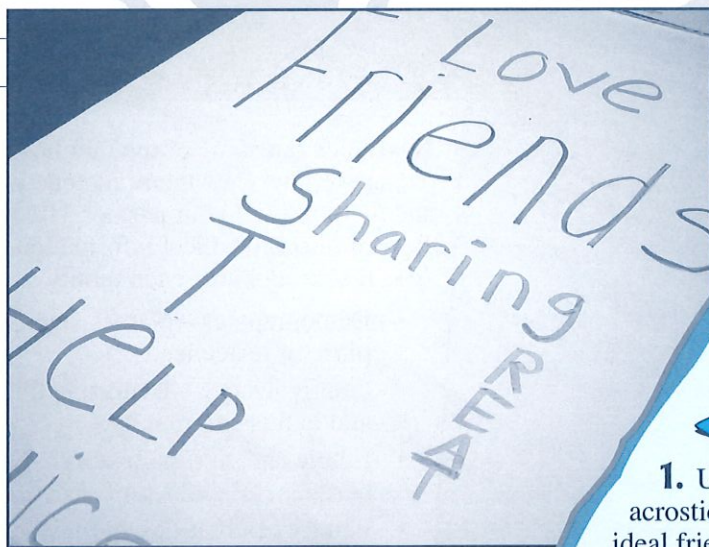 Love
Friends
Sharing
T
REAT
HeLP
1. U
acrostic
ideal frie